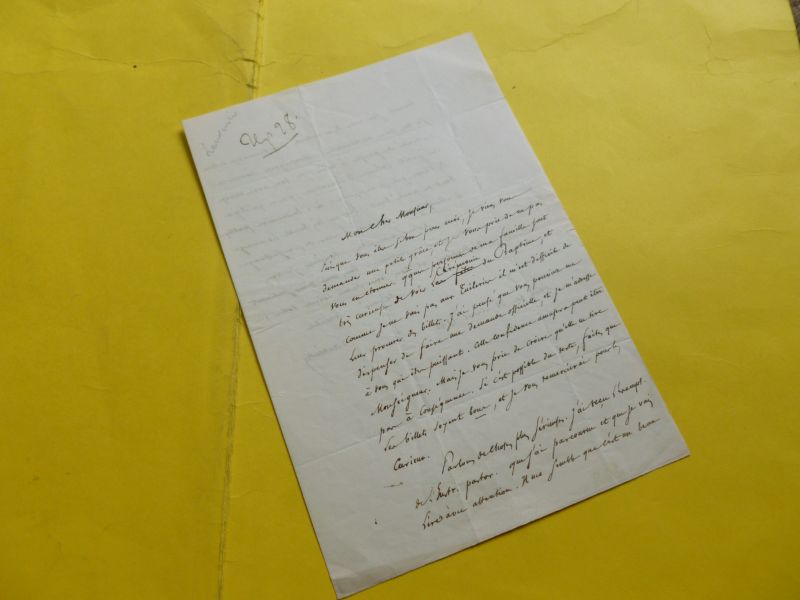 28.
Mon cher Monsieur,
Puisque vous êtes si bon pour moi, je vais vous
demander une petite grâce, et je vous prie de ne pas
vous en étonner. qques personnes de ma famille sont
très curieuses de voir la cérémonie du Baptême, et
comme je ne vais pas aux Tuileries il m'est difficile de
leur procurer des billets. J'ai pensé que vous pourriez me
dispenser de faire une demande officielle, et je m'adresse
à vous qui êtes puissant. Cette confidence amusera peut être
Monseigneur. Mais je vous prie de croire qu'elle ne tire
pas à conséquence. Si c'est possible du reste, faites que
les billets soyent bons, et je vous remercierai pour les
curieux.
Parlons de choses plus sérieuses. J'ai reçu l'exempl.
de l'Instr. pastor. que j'ai parcourue et que je vais
lire avec attention. Il me semble que c'est un beau